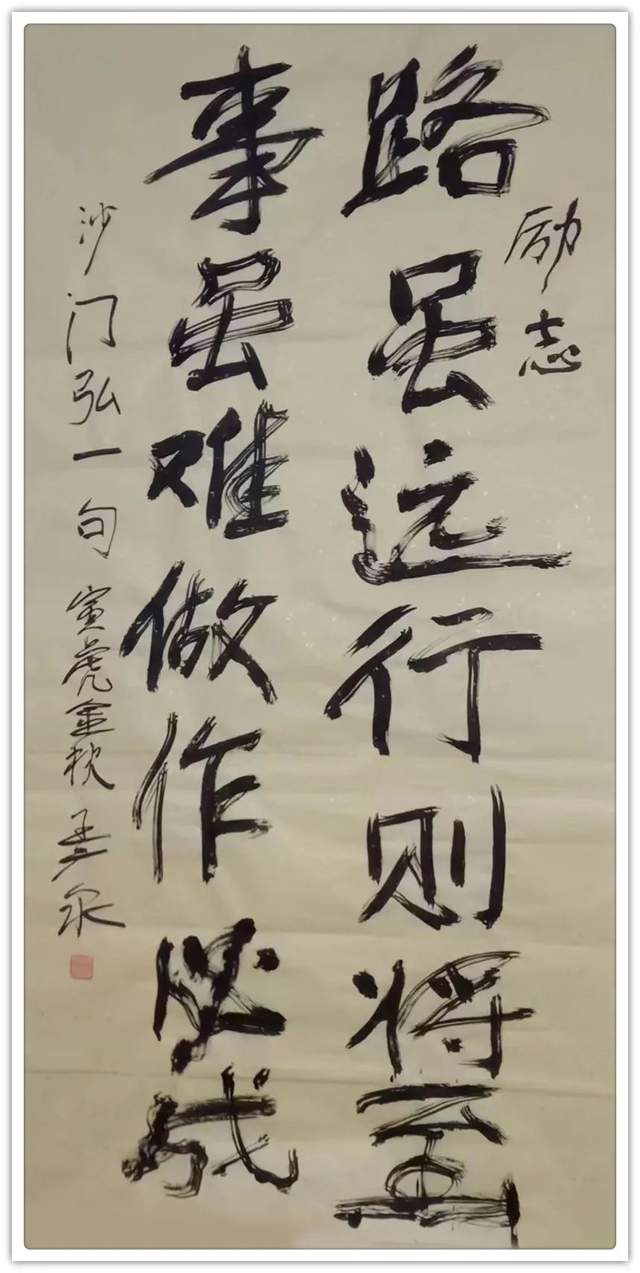 励志
路虽远行则将至
事虽难做作必成
沙门弘一句 寅虎金秋